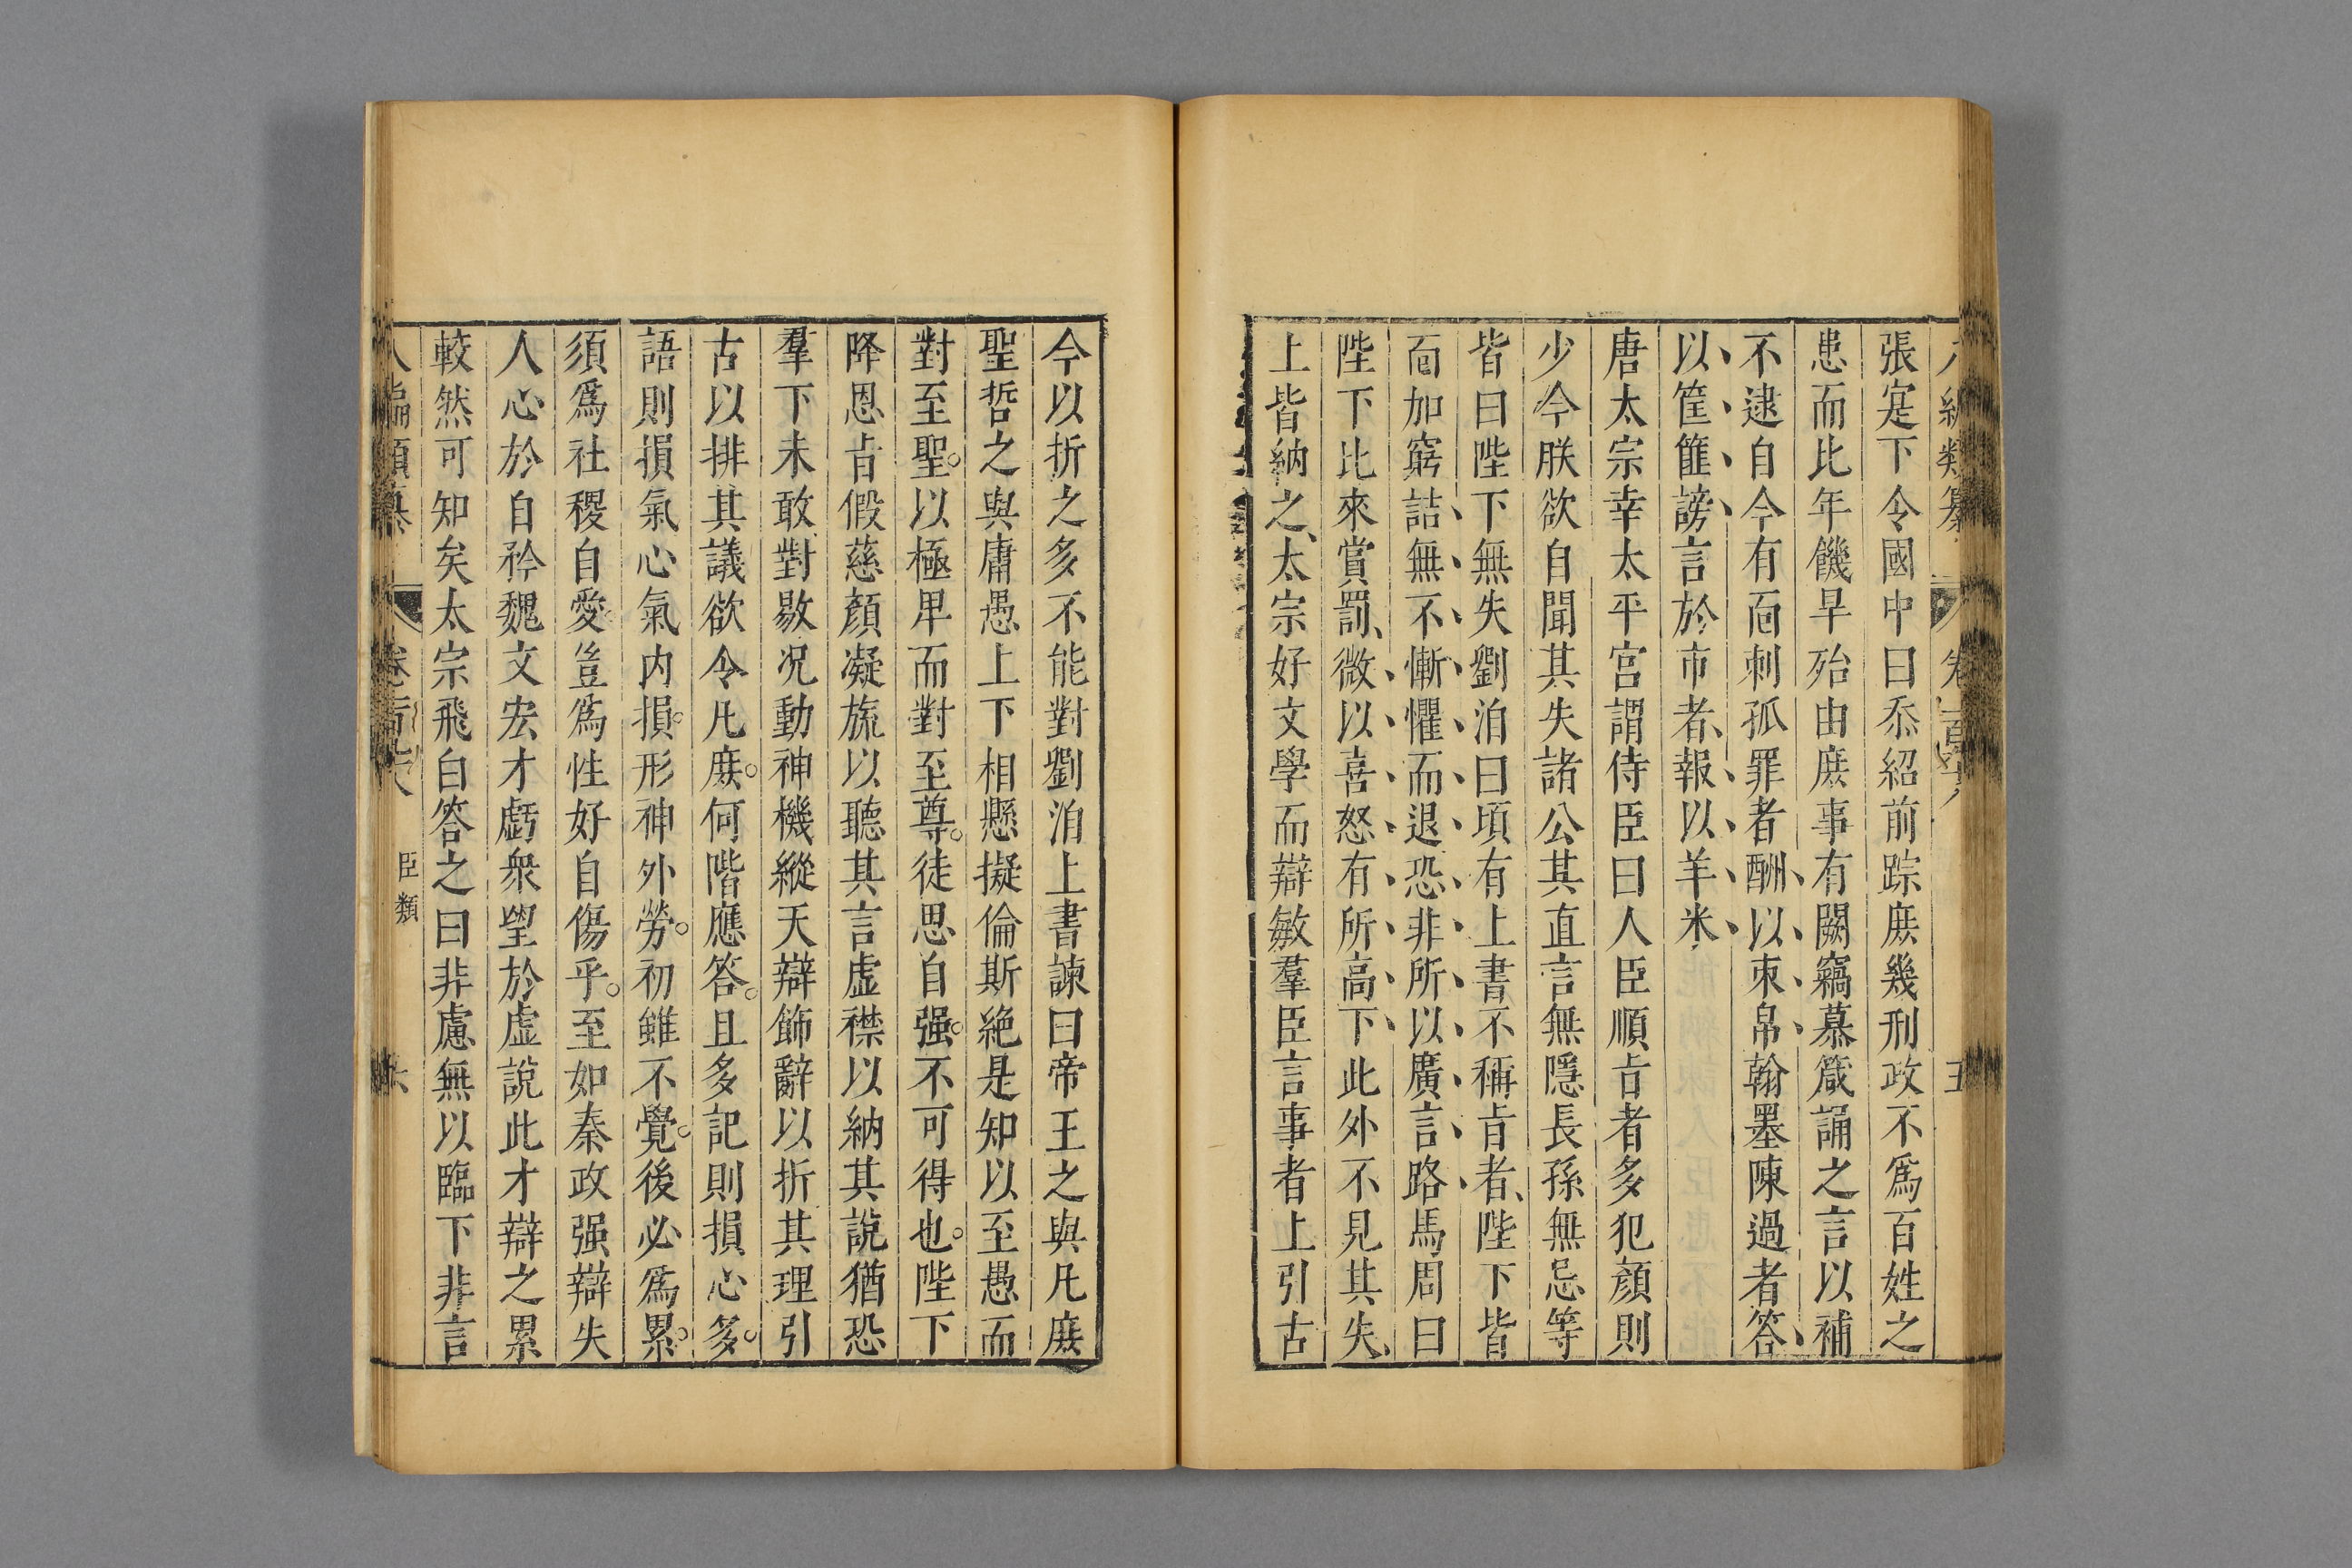 張寔下令國中曰忝紹前踪庶幾刑政不爲百姓之
患而比年饑旱殆由庶事有闕竊慕箴誦之言以補
不逮自今有靣刺孤罪者酬以束帛翰墨陳過者答
以筐篚謗言於市者報以羊米
唐太宗幸太平宫謂侍臣曰人臣順㫖者多犯顔則
少今朕欲自聞其失諸公其直言無隱長孫無忌等
皆曰陛下無失劉洎曰頃有上書不稱㫖者陛下皆
靣加窮詰無不慚懼而退恐非所以廣言路馬周曰
陛下比來賞罰微以喜怒有所高下此外不見其失
上皆納之太宗好文學而辯敏羣臣言事者上引古
今以折之多不能對劉洎上書諫曰帝王之與凡庶
聖哲之與庸愚上下相懸擬倫斯絶是知以至愚而
對至聖。以極卑而對至尊。徒思自强。不可得也。陛下
降恩㫖假慈顔凝旒以聽其言虚襟以納其説猶恐
羣下未敢對敭况動神機縱天辯飾辭以折其理引
古以排其議欲令凡庶。何階應答。且多記則損心多。
語則損氣心氣内損。形神外勞。初雖不覺。後必爲累。
須爲社稷自愛豈爲性好自傷乎。至如秦政强辯失
人心於自矜魏文宏才虧衆望於虚説此才辯之累
較然可知矣太宗飛白答之曰非慮無以臨下非言
臣類